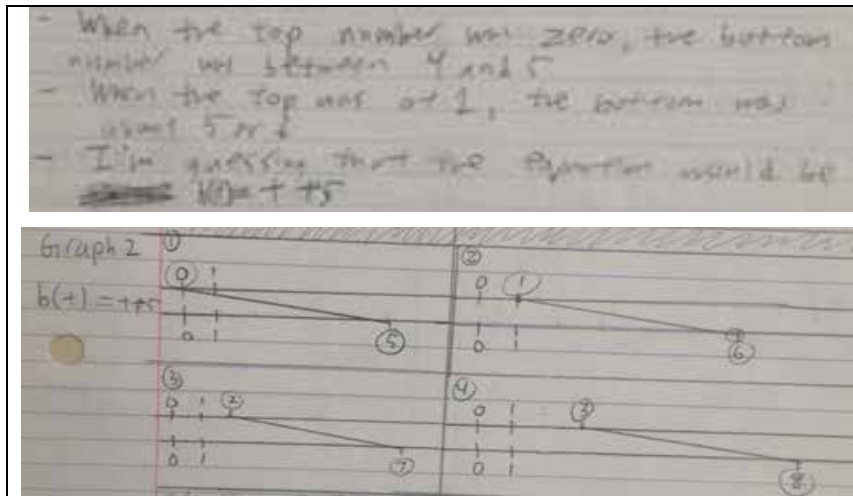 - When the top number was zero, the bottom
number was between 4 and 5
- When the top was at 1, the bottom was
about 5 or 6
- I'm guessing that the equation would be
= t +5
Graph 2
b(t) = t+5
①
0 1
0 1
5
②
0 1
0 1
6
③
0 1 2
0 1
7
④
0 1 3
0 1
8